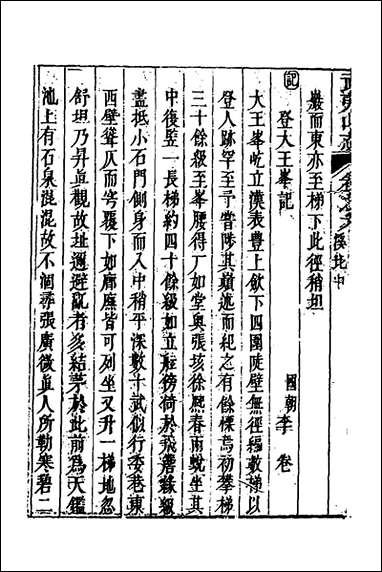 武夷山志
溪北中
巖而東亦至梯下此徑稍坦
記
登大王峯記
國朝 李卷
大王峯屹立漢表豐上歛下四圍陡壁無徑編數梯以
登人跡罕至予嘗陟其巔遊而紀之有餘慄焉初攀梯
三十餘級至峯腰得厂如堂奧張垓徐熙春兩蛻坐其
中後竪一長梯約四十餘級如立 傍倚於飛 緣級
盡抵小石門側身而入中稍平深數十武似行委巷東
西壁聳仄而穹覆下如廊廡皆可列坐又升一梯地忽
舒坦乃昇眞觀故址邇避亂者多結茅於此前爲天鑑
池上有石泉混混故不涸尋張廣微眞人所勒寒碧二